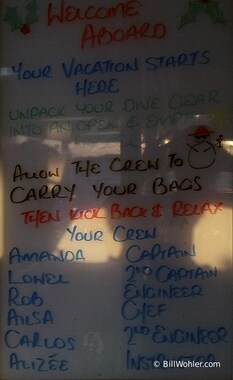 WELCOME
ABOARD
YOUR VACATION STARTS
HERE
UNPACK YOUR DIVE GEAR
INTO AN OPEN & EMPTY
ALLOW THE CREW TO
CARRY YOUR BAGS
THEN KICK BACK & RELAX
YOUR CREW
AMANDA CAPTAIN
LOWEL 2ND CAPTAIN
ROB ENGINEER
AILSA CHEF
CARLOS 2ND ENGINEER
ALIZÉE INSTRUCTOR
© BillWohler.com